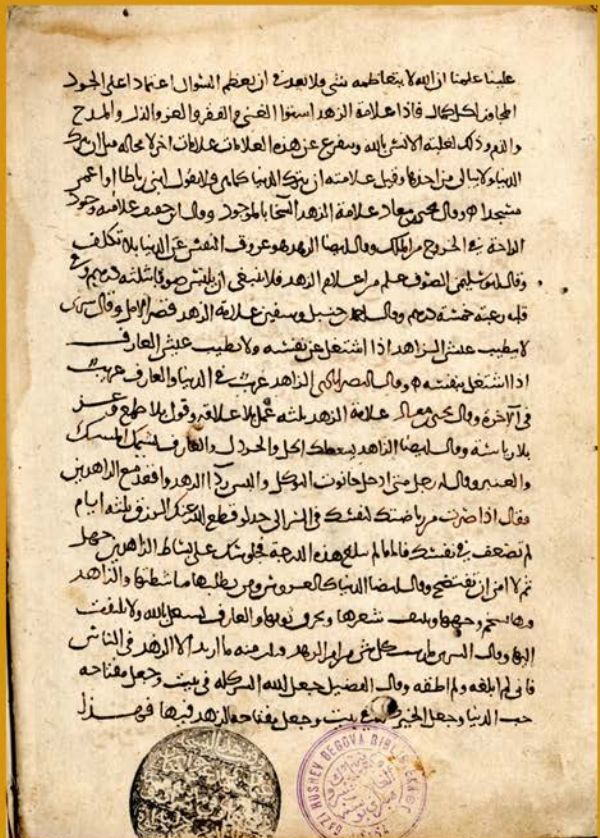 علينا علمنا ان الله لا يتعاظمه شي فلا بعد في ان يعظم السوال اعتمادا على الجود
المجاوز لكل كمال فاذا علامة الزهد استوا الغنى والفقر والعز والذل والمدح
والذم وذلك لغلبة الانس بالله ويتفرع عن هذه العلامات علامات اخر لا محاله مثل ان يترك
الدنيا ولا يبالي من اخذها وقيل علامته ان يترك الدنيا كما هي فلا يقول ابني رباطا او اعمر
مسجدا وقال يحيى بن معاذ علامة الزهد السخا بالموجود وقال ابن خفيف علامته وجود
الراحة في الخروج من الملك وقال ايضا الزهد هو عزوف النفس عن الدنيا بلا تكلف
وقال ابو سليمن الصوف علم من اعلام الزهد فلا ينبغي ان يلبس صوفا بثلثة دراهم وفي
قلبه رغبة خمسة دراهم وقال احمد بن حنبل وسفين علامة الزهد قصر الامل وقال سرى
لا يطيب عيش الزاهد اذا اشتغل عن نفسه ولا يطيب عيش العارف
اذا اشتغل بنفسه وقال النصراباذي الزاهد غريب في الدنيا والعارف غريب
في الاخرة وقال يحيى بن معاذ علامة الزهد ثلثة عمل بلا علاقة وقول بلا طمع وعز
بلا رياسة وقال ايضا الزاهد يسعطك الخل والخردل والعارف يشمك المسك
والعنبر وقال له رجل متى ادخل حانوت التوكل والبس ردا الزهد واقعد مع الزاهدين
فقال اذا صرت من رياضتك لنفسك في السر الى حد لو قطع الله عنك الرزق ثلثة ايام
لم تضعف في نفسك فاما ما لم تبلغ هذه الدرجة فجلوسك على بساط الزاهدين جهل
ثم لا امن ان تفتضح وقال ايضا الدنيا كالعروس ومن يطلبها ماشطتها والزاهد
فيها يسخم وجهها وينتف شعرها ويخرق ثوبها والعارف مشتغل بالله ولا يلتفت
اليها وقال السرى مارست كل شي من امر الزهد فنلت منه ما اريد الا الزهد في الناس
فاني لم ابلغه ولم اطقه وقال الفضيل جعل الله الشر كله في بيت وجعل مفتاحه
حب الدنيا وجعل الخير كله في بيت وجعل مفتاحه الزهد فيها فهذا
GAZI HUSREV BEGOVA BIBLIOTEKA